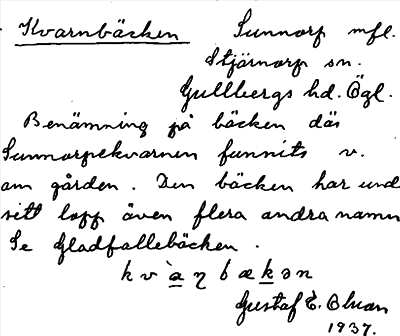 Kvarnbäcken Sunnorp mfl.
Stjärnorp sn.
Gullbergs hd. Ögl.
Benämning på bäcken där
Sunnorpekvarnen funnits v.
om gården. Den bäcken har und
sitt lopp även flera andra namn
Se Gladfallebäcken.
kv`aηbækən
Gustaf E. Olson
1937.